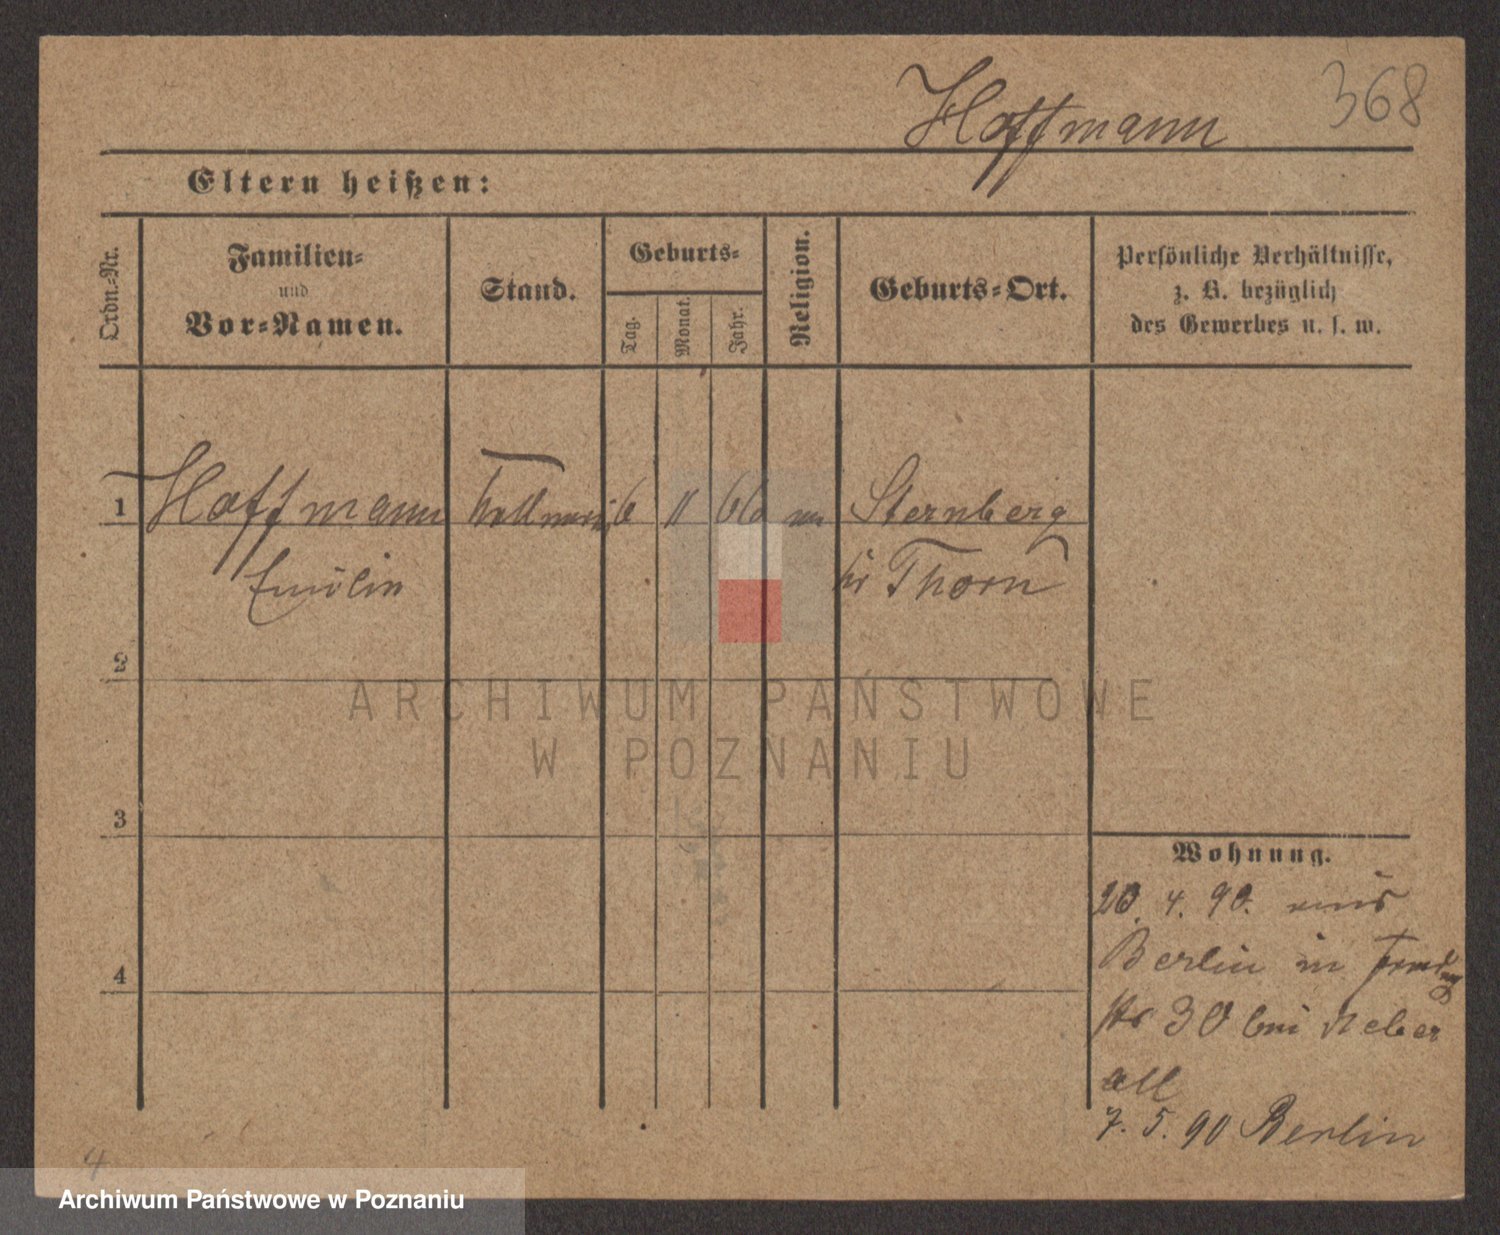 Hoffmann 368
Eltern heißen:
Ordn.-Nr.
Familien-
und
Vor-Namen.
Stand.
Geburts-
Tag.
Monat.
Jahr.
Religion.
Geburts-Ort.
Persönliche Verhältnisse,
z. B. bezüglich
des Gewerbes u. s. w.
1 Hoffmann 6 11 Sternberg
Emilie Thorn
2
ARCHIWUM PAŃSTWOWE
W POZNANIU
3
4
Wohnung.
20. 4. 90. aus
Berlin in
str 30 bei
all
7. 5. 90 Berlin
4
Archiwum Państwowe w Poznaniu